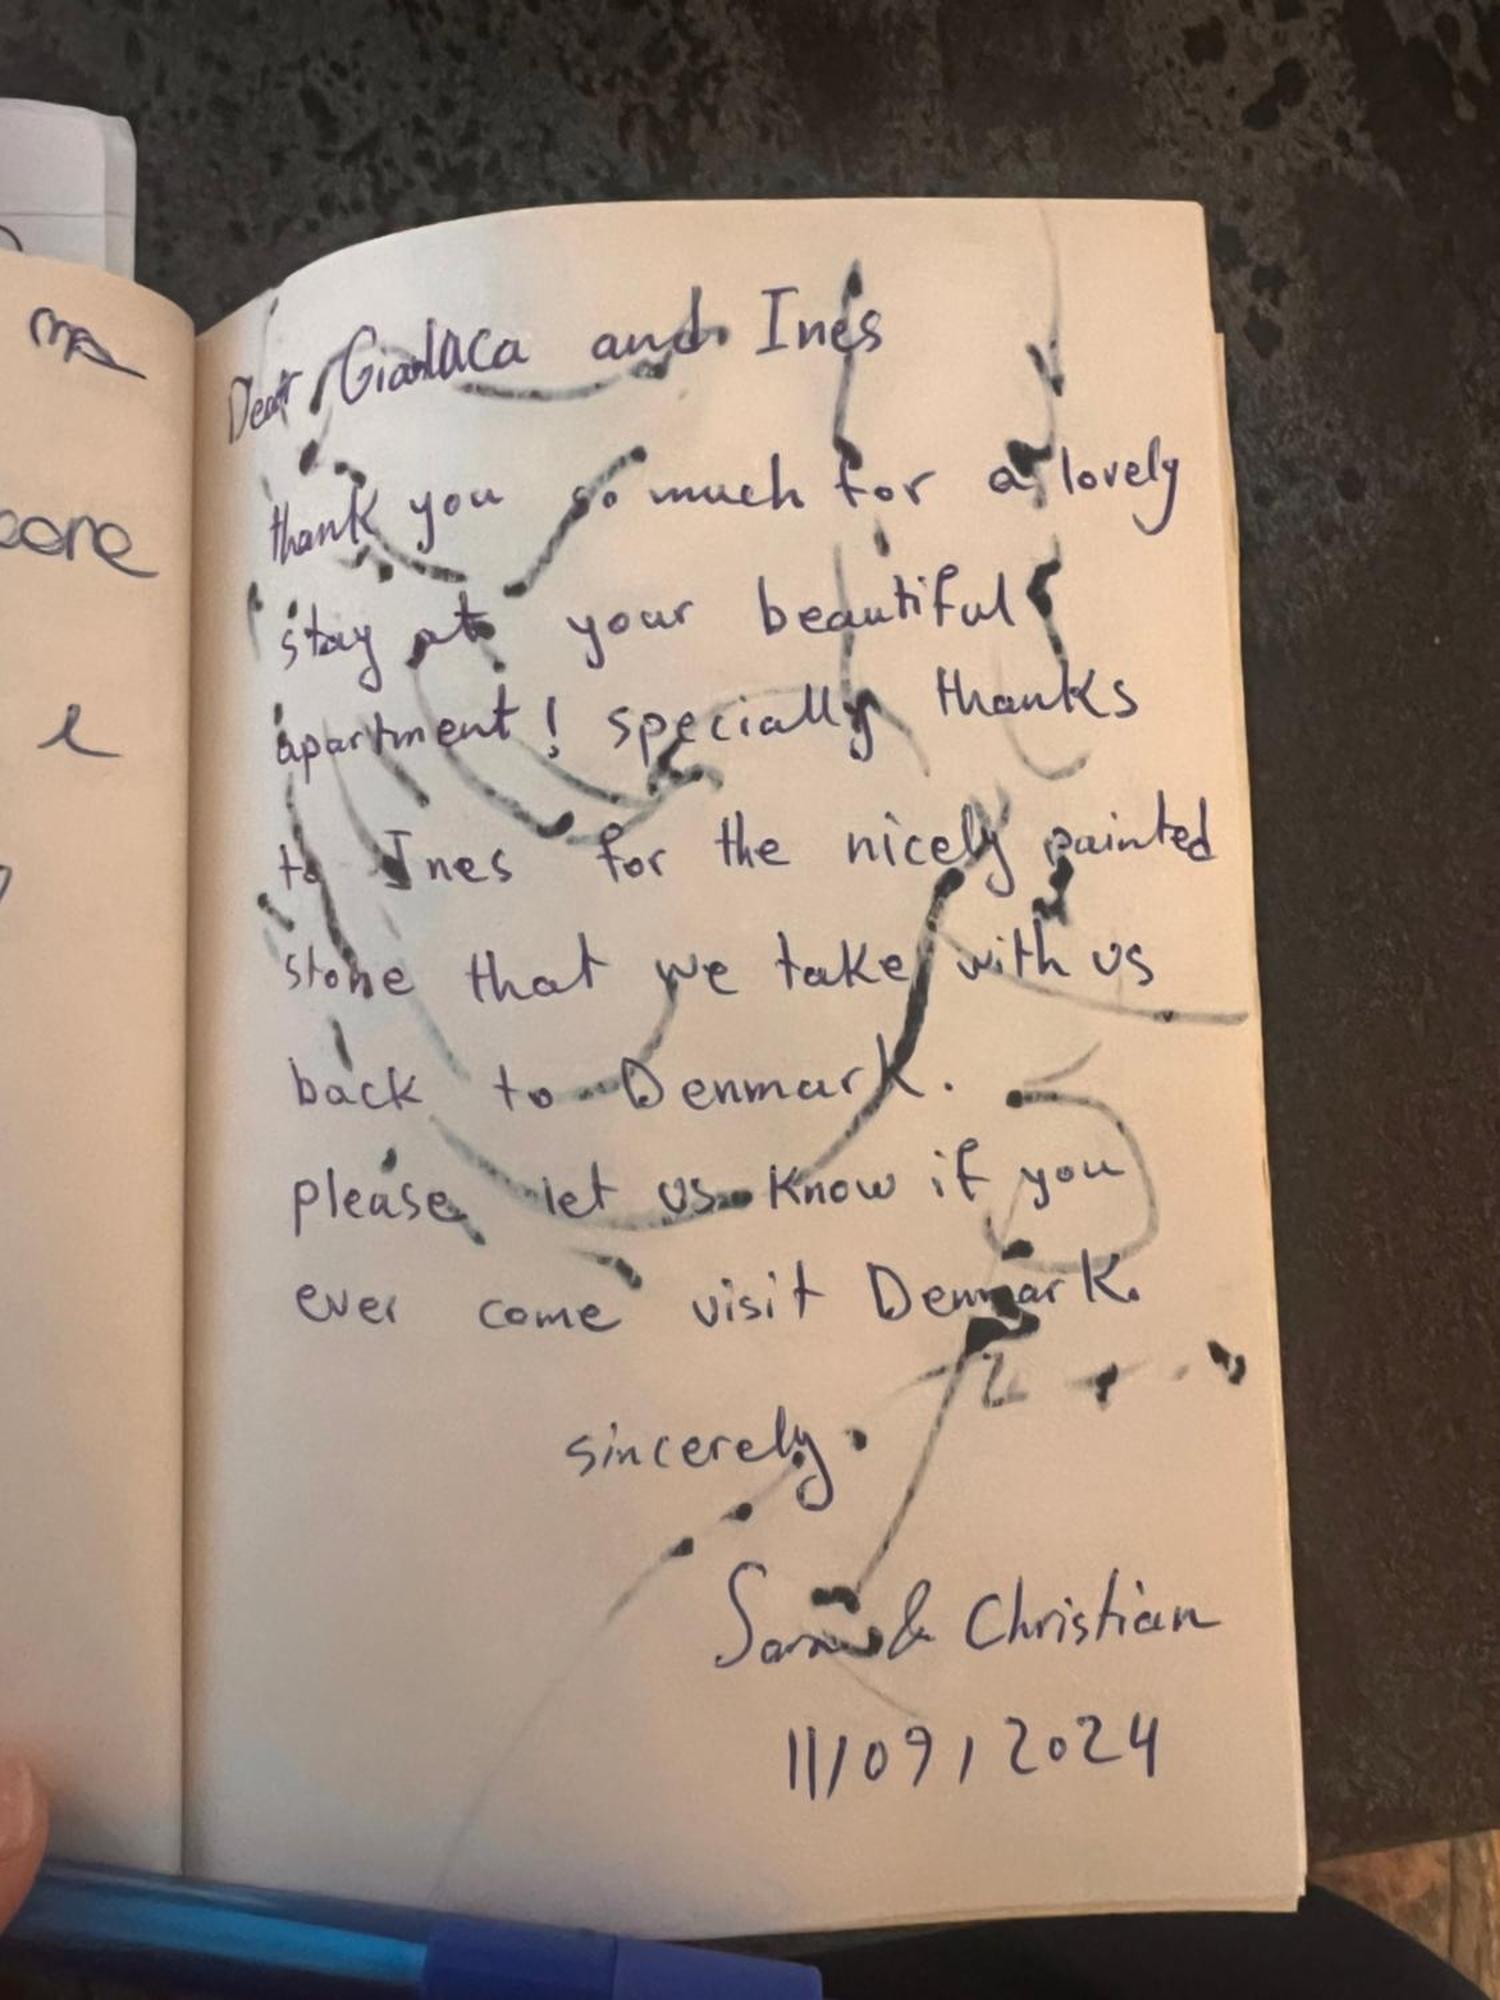 Dear Gianluca and Ines
thank you so much for a lovely
stay at your beautiful
apartment! specially thanks
to Ines for the nicely painted
stone that we take with us
back to Denmark.
please let us know if you
ever come visit Denmark.
sincerely
& Christian
11/09/2024